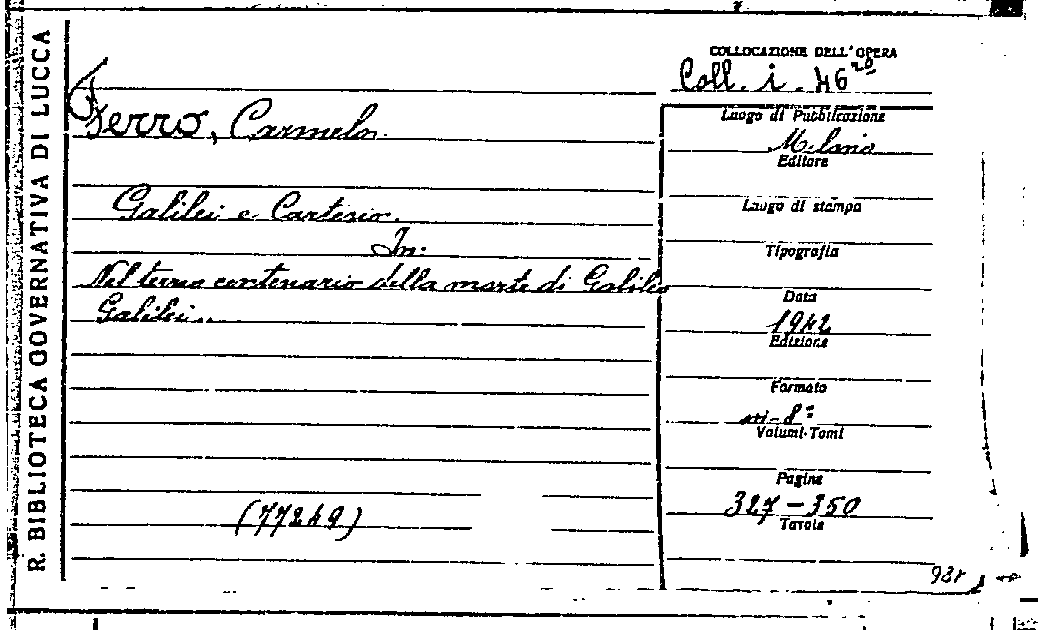 R. BIBLIOTECA GOVERNATIVA DI LUCCA
COLLOCAZIONE DELL'OPERA
Coll. i. 46²⁰
Ferro, Carmelo.
Galilei e Cartesio.
In:
Nel terzo centenario della morte di Galileo
Galilei..
(77249)
Luogo di Pubblicazione
Milano
Editore
Luogo di stampa
Tipografia
Data
1942
Edizione
Formato
in-8°
Volumi-Tomi
Pagine
327-350
Tavole